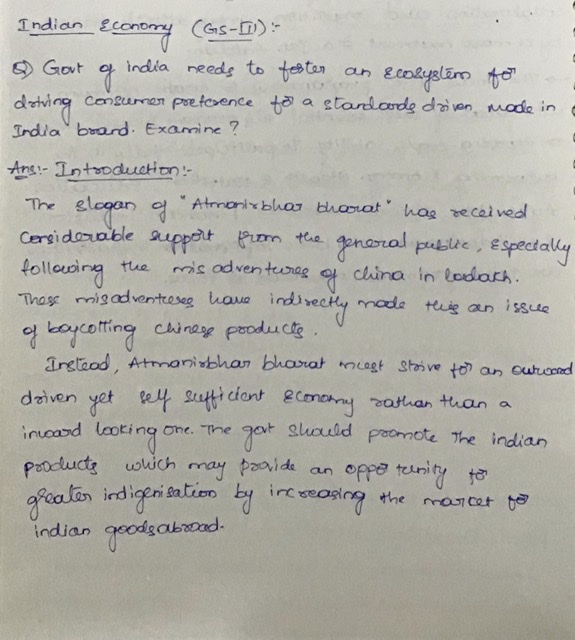 Indian Economy (GS-III) :-
Q) Govt of india needs to foster an Ecosystem for
driving consumer preference for a standards driven, made in
India brand. Examine ?
Ans:- Introduction:-
The slogan of "Atmanirbhar bharat" has received
considerable support from the general public, Especially
following the misadventures of china in ladakh.
These misadventures have indirectly made this an issue
of boycotting chinese products.
Instead, Atmanirbhar bharat must strive for an outward
driven yet self sufficient Economy rathan than a
inward looking one. The govt should promote The indian
products which may provide an oppotunity for
greater indigenisation by increasing the market for
indian goods abroad.